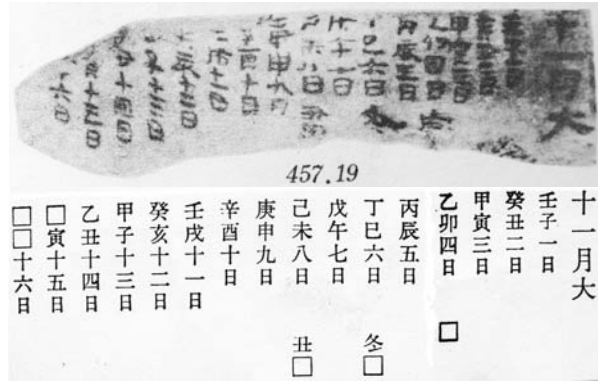 457.19
十一月大
壬子一日
癸丑二日
甲寅三日
乙卯四日 □
丙辰五日
丁巳六日 冬
戊午七日
己未八日 丑□
庚申九日
辛酉十日
壬戌十一日
癸亥十二日
甲子十三日
乙丑十四日
□寅十五日
□□十六日